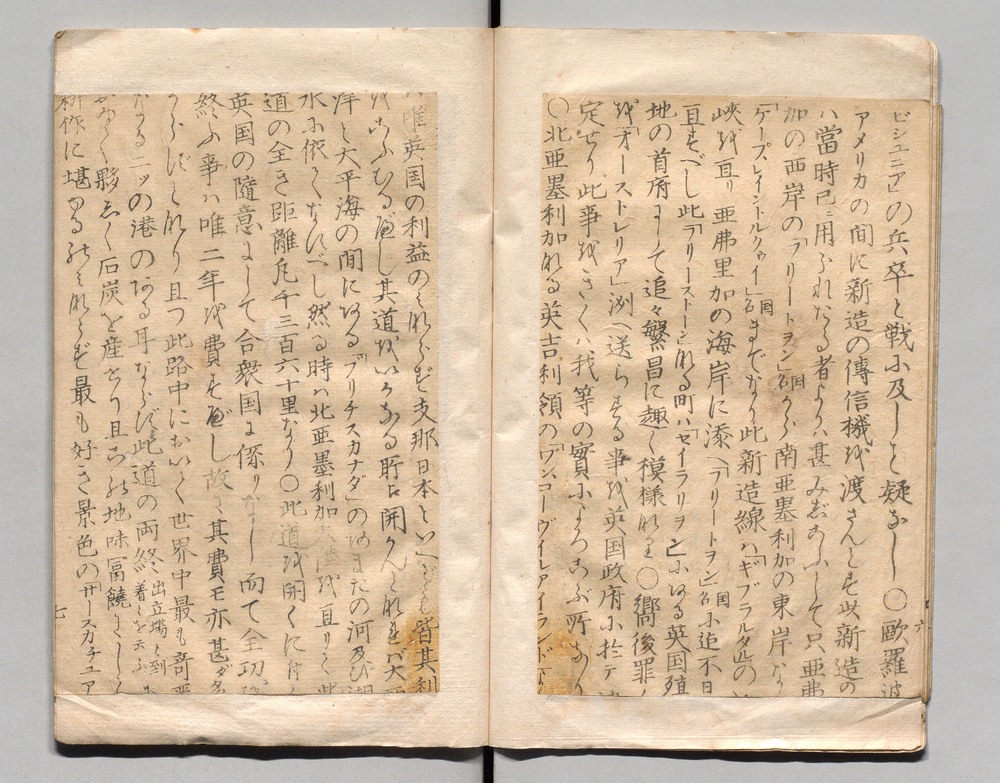 ビシユニア」の兵卒と戦小及しと疑なし〇歐羅波
アメリカの間に新造の傳信機を渡さんとす此新造の
ハ當時已ニ用ふれたる者よりハ甚みじかふして只亜弗
加の西岸の「フリートヲン」国名から南亜墨利加の東岸なり
「ケープスレイントルクゥイ」国名までなり此新造線ハ「ギブラルタル」の
峡を直り亜弗里加の海岸に添へ「フリートヲン」国名小迄不日
直すべし此「フリーストーン」なる町ハ「セイラリヲン」にある英国殖
地の首府にして追々繁昌に趣く模様なり〇嚮後罪
を「オーストレリア」洲へ送らざる事を英国政府小於テ
定せり此事をきく我等の實小よろこぶ所なり
〇北亜墨利加なる英吉利領の「ワンコーヴイルアイランド」よ
唯英国の利益のみならず支那日本といへども皆其利
をかふむるべし其道をいかなる所に開かんとなれば大
洋と大平海の間にある「ブリチスカナダ」のあまたの河及び湖
水小依てなすべし然る時ハ北亜墨利加大陸を直りと
道の全き距離凡千三百六十里なり〇此道を開くに
英国の隨意にして合衆国に係りなし而て全功
終ふ事ハ唯二年を費すべし故に其費モ亦甚ダ
からずとなり且つ此路中において世界中最も奇
なる二ツの港のある耳ならず此道の両終出立場と到着とを云ふ
夥しく石炭を産せり且その地味冨饒にし
耕作に堪ゆるのみならず最も好き景色の「サースカチエア